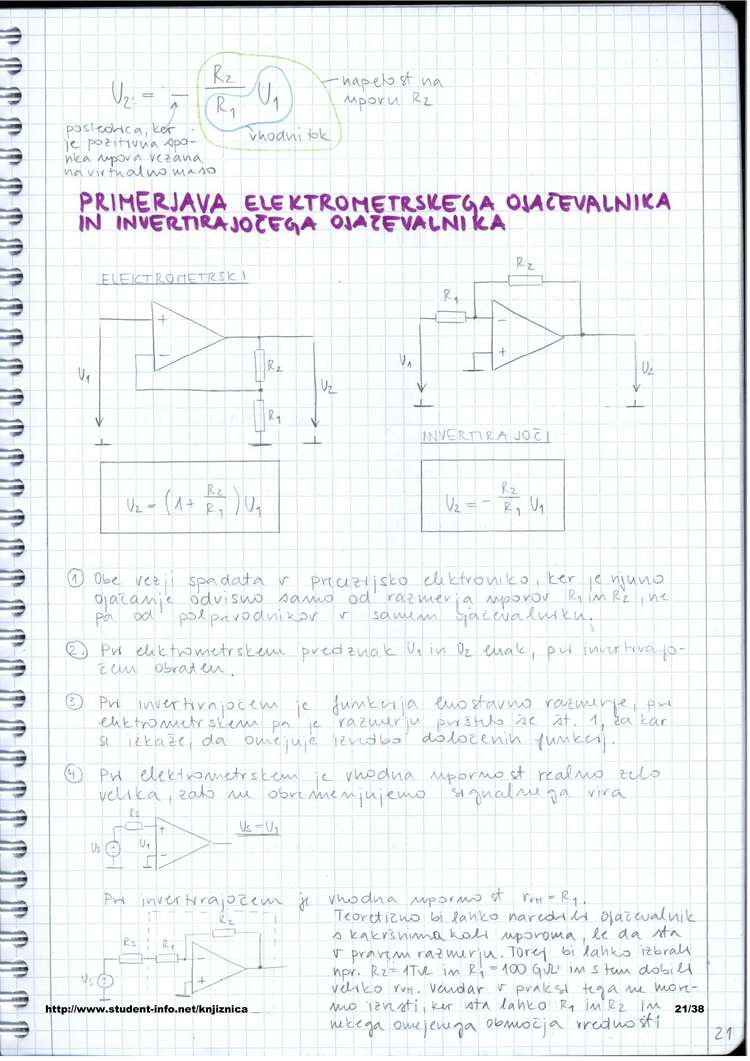 U₂ = - R₂/R₁ U₁
napetost na
uporu R₂
vhodni tok
posledica, ker
je pozitivna spo-
nka upora vezana
na virtualno maso
PRIMERJAVA ELEKTROMETRSKEGA OJAČEVALNIKA
IN INVERTIRAJOČEGA OJAČEVALNIKA
ELEKTROMETRSKI
+
-
R₂
R₁
U₁
U₂
R₂
R₁
-
+
U₁
U₂
INVERTIRAJOČI
U₂ = (1 + R₂/R₁) U₁
U₂ = - R₂/R₁ U₁
① Obe vezji spadata v precizijsko elektroniko, ker je njuno
ojačanje odvisno samo od razmerja uporov R₁ in R₂, ne
pa od polprevodnikov v samem ojačevalniku.
② Pri elektrometrskem predznak U₁ in U₂ enak, pri invertirajo-
čem obraten.
③ Pri invertirajočem je funkcija enostavno razmerje, pri
elektrometrskem pa je razmerju prišteto še št. 1, za kar
se izkaže, da omejuje izvedbo določenih funkcij.
④ Pri elektrometrskem je vhodna upornost realno zelo
velika, zato ne obremenjujemo signalnega vira
Rs
Us
U₁
+
-
Us = U₁
Pri invertirajočem je vhodna upornost rVH = R₁.
R₂
Rs
R₁
Us
-
+
Teoretično bi lahko naredili ojačevalnik
s kakršnima koli uporoma, le da sta
v pravem razmerju. Torej bi lahko izbrali
npr. R₂ = 1TΩ in R₁ = 100 GΩ in s tem dobili
veliko rVH. Vendar v praksi tega ne more-
mo izvesti, ker sta lahko R₁ in R₂ iz
nekega omejenega območja vrednosti
http://www.student-info.net/knjiznica
21/38
21